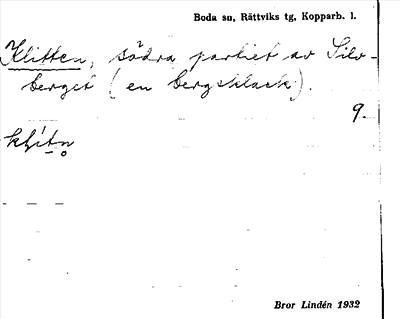 Boda sn, Rättviks tg, Kopparb. l.
Klitten, södra partiet av Silv-
berget (en bergsklack).
9.
Bror Lindén 1932